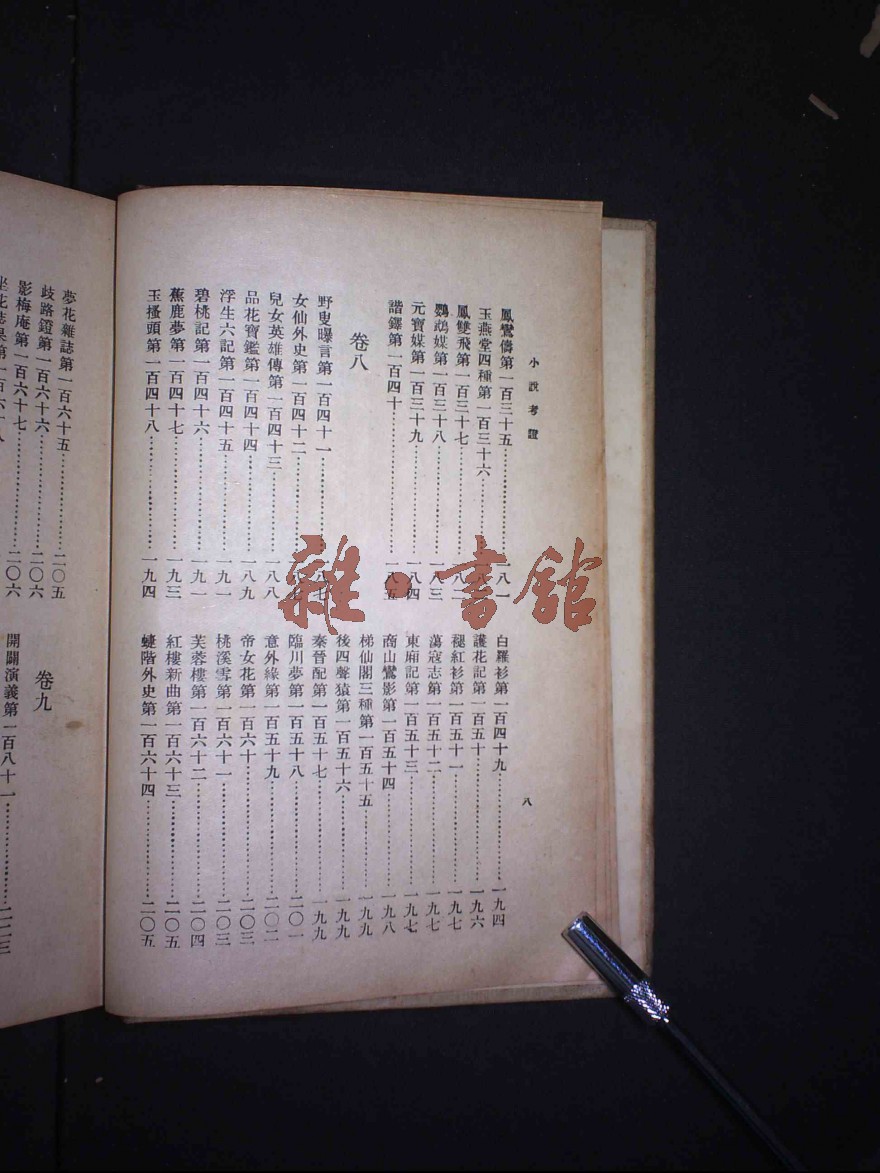 小說考證
鳳鸞儔第一百三十五……一八一
玉燕堂四種第一百三十六
鳳雙飛第一百三十七……一八二
鸚鵡媒第一百三十八……一八三
元寶媒第一百三十九……一八四
諧鐸第一百四十……一八五
卷八
野叟曝言第一百四十一……一八七
女仙外史第一百四十二……一八七
兒女英雄傳第一百四十三……一八八
品花寶鑑第一百四十四……一八九
浮生六記第一百四十五……一九一
碧桃記第一百四十六……一九一
蕉鹿夢第一百四十七……一九三
玉搔頭第一百四十八……一九四
白羅衫第一百四十九……一九四
護花記第一百五十……一九六
褪紅衫第一百五十一……一九七
蕩寇志第一百五十二……一九七
東廂記第一百五十三……一九七
商山鸞影第一百五十四……一九八
梯仙閣三種第一百五十五……一九九
後四聲猿第一百五十六……一九九
秦晉配第一百五十七……一九九
臨川夢第一百五十八……二〇一
意外緣第一百五十九……二〇二
帝女花第一百六十……二〇三
桃溪雪第一百六十一……二〇三
芙蓉樓第一百六十二……二〇四
紅樓新曲第一百六十三……二〇五
蜨階外史第一百六十四……二〇五
八
夢花雜誌第一百六十五……二〇五
歧路鐙第一百六十六……二〇六
影梅庵第一百六十七……二〇六
卷九
開闢演義第一百八十一……二二三
雜·書館